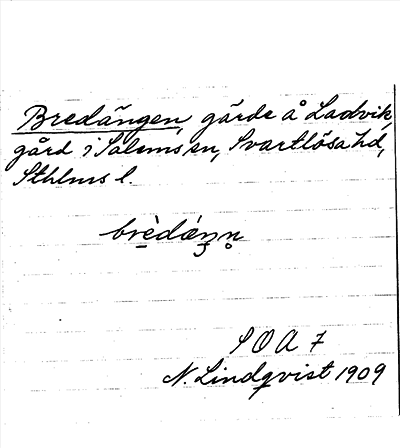 Bredängen, gärde å Ladvik,
gård i Salems sn, Svartlösa hd,
Sthlms l.
brèdáŋn̥
SOA 7
N. Lindqvist 1909